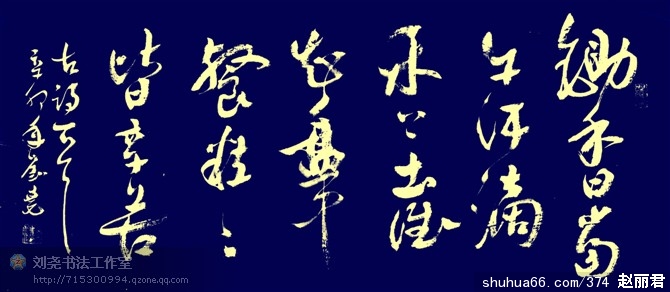 锄禾日当
午汗滴
禾下土谁
知盘中
餐粒〻
皆辛苦
古诗一首
辛卯年刘尧
刘尧书法工作室
http://715300994.qzone.qq.com
shuhua66.com/374 赵丽君